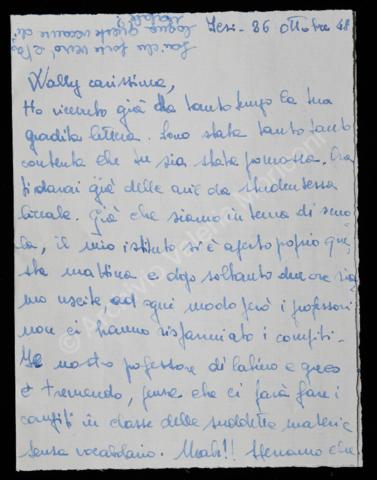 Jesi - 26 ottobre 48
Wally carissima,
Ho ricevuto già da tanto tempo la tua
gradita lettera. Sono stata tanto tanto
contenta che tu sia stata promossa. Ora
ti darai già delle arie da studentessa
liceale. Già che siamo in tema di scuo
la, il mio istituto si è aperto proprio que
sta mattina e dopo soltanto due ore sia
mo uscite, ad ogni modo però i professori
non ci hanno risparmiato i compiti -
Il nostro professore di latino e greco
è tremendo, pensa che ci farà fare i
compiti in classe delle suddette materie
senza vocabolario. Mah!! Speriamo che